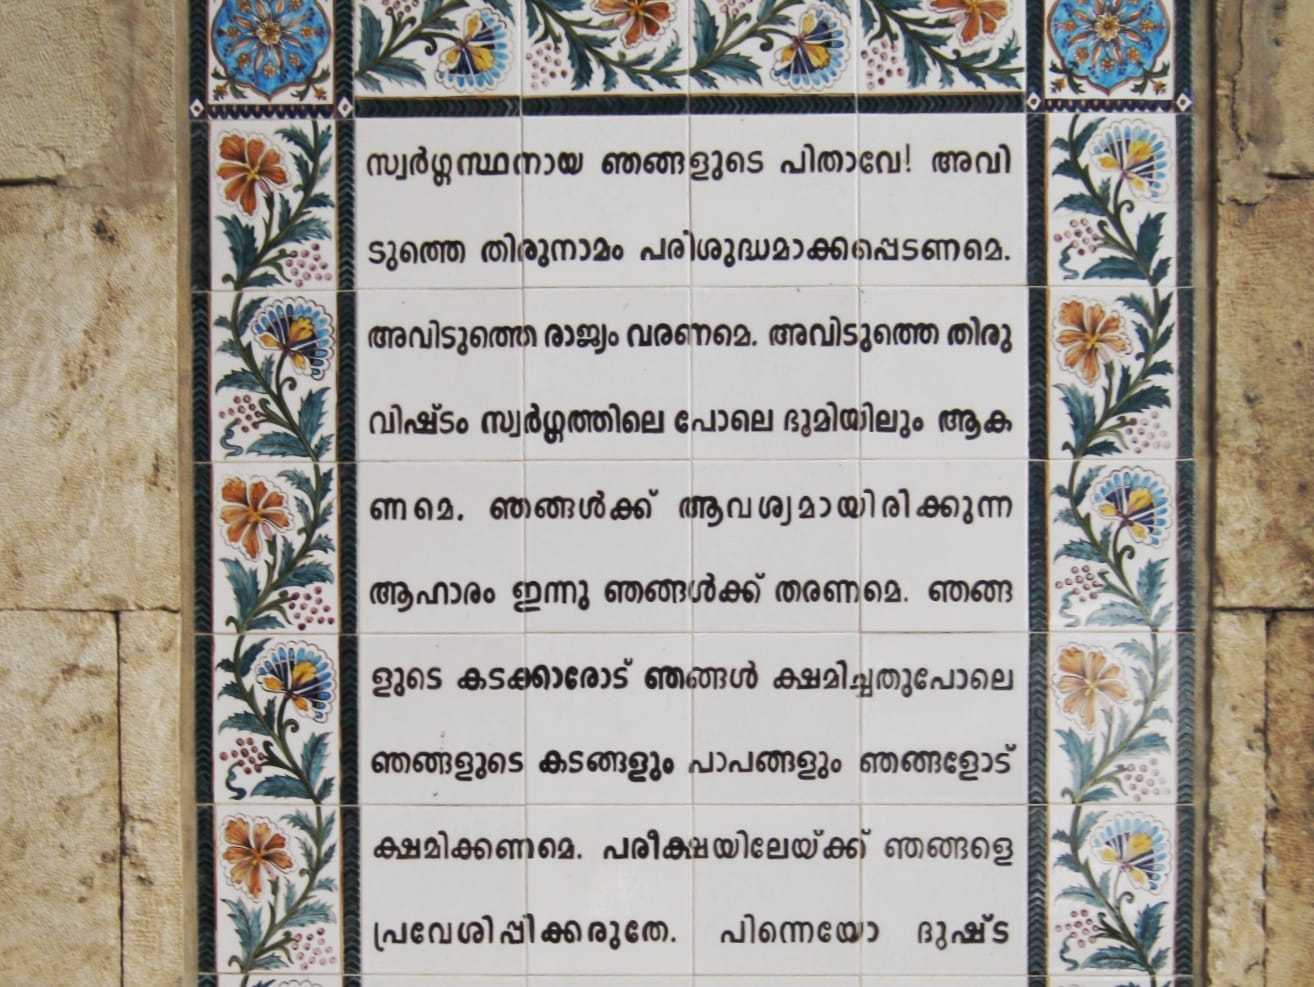 സ്വർഗ്ഗസ്ഥനായ ഞങ്ങളുടെ പിതാവേ! അവി
ടുത്തെ തിരുനാമം പരിശുദ്ധമാക്കപ്പെടണമെ.
അവിടുത്തെ രാജ്യം വരണമെ. അവിടുത്തെ തിരു
വിഷ്ടം സ്വർഗ്ഗത്തിലെ പോലെ ഭൂമിയിലും ആക
ണമെ. ഞങ്ങൾക്ക് ആവശ്യമായിരിക്കുന്ന
ആഹാരം ഇന്നു ഞങ്ങൾക്ക് തരണമെ. ഞങ്ങ
ളുടെ കടക്കാരോട് ഞങ്ങൾ ക്ഷമിച്ചതുപോലെ
ഞങ്ങളുടെ കടങ്ങളും പാപങ്ങളും ഞങ്ങളോട്
ക്ഷമിക്കണമെ. പരീക്ഷയിലേയ്ക്ക് ഞങ്ങളെ
പ്രവേശിപ്പിക്കരുതേ. പിന്നെയോ ദുഷ്ട